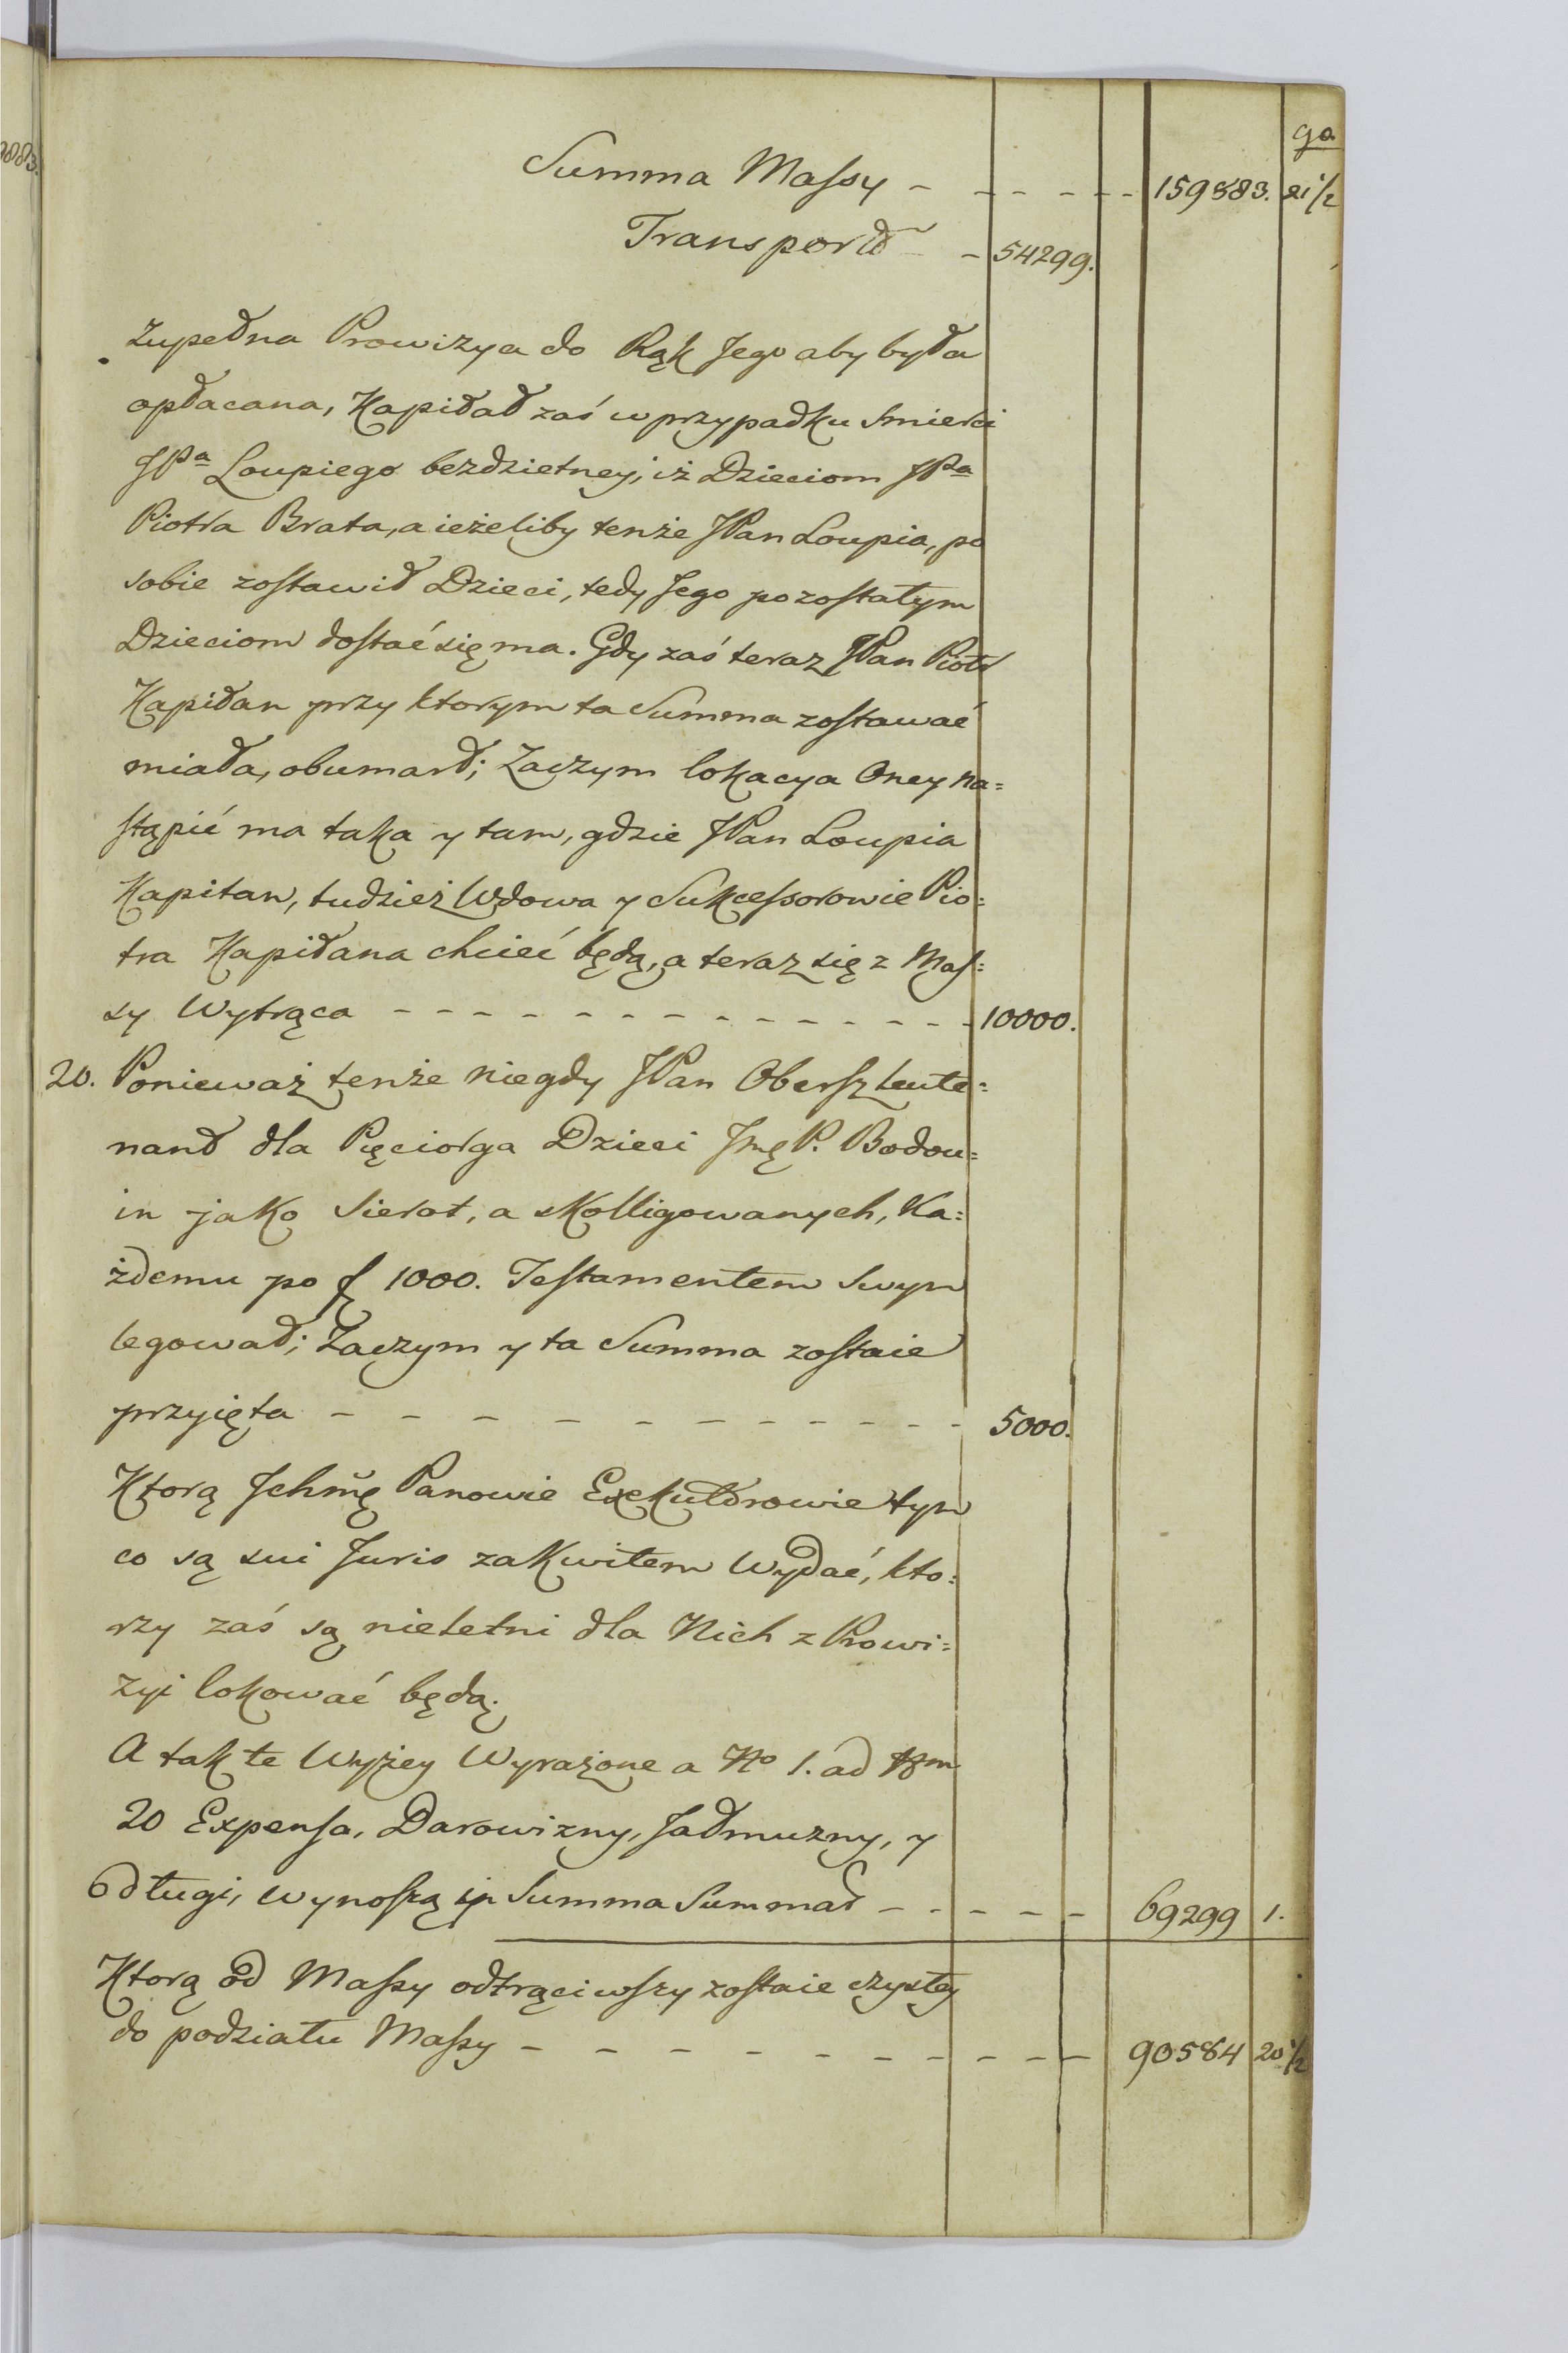 ga
Summa Massy - - - - - 159883. 21 1/2
Transport - - 54299.
Zupełna Prowizya do Rąk Jego aby była
opłacana, Kapitał zaś w przypadku Smierci
JPa Loupiego bezdzietney, iż Dzieciom JPa
Piotra Brata, a ieżeliby tenże JPan Loupia, po
sobie zostawił Dzieci, tedy Jego pozostałym
Dzieciom dostać się ma. Gdy zaś teraz JPan Piotr
Kapitan przy ktorym ta Summa zostawać
miała, obumarł; Zaczym lokacya Oney na=
stąpić ma taka y tam, gdzie JPan Loupia
Kapitan, tudzież Wdowa y Sukcessorowie Pio=
tra Kapitana chcieć będą, a teraz się z Mas=
sy Wytrąca - - - - - - - - - - - - - - - 10000.
20. Ponieważ tenże niegdy JPan Oberszleute=
nant dla Pięciorga Dzieci Jmę P. Bodou=
in jako Sierot, a skolligowanych, Ka=
żdemu po f 1000. Testamentem Swym
legował; Zaczym y ta Summa zostaie
przyięta - - - - - - - - - - - - 5000.
Ktorą Jchmę Panowie Exekutorowie tym
co są sui Juris zakwitem Wydać, kto=
rzy zaś są nieletni dla Nich z Prowi=
zyi lokować będą.
A tak te Wyżey Wyrażone a No 1. ad
20 Expensa, Darowizny, Jałmuzny, y
długi, wynoszą in Summa Summar - - - - - 69299 1.
Ktorą od Massy odtrąciwszy zostaie czystey
do podziału Massy - - - - - - - - - - - 90584 20 1/2